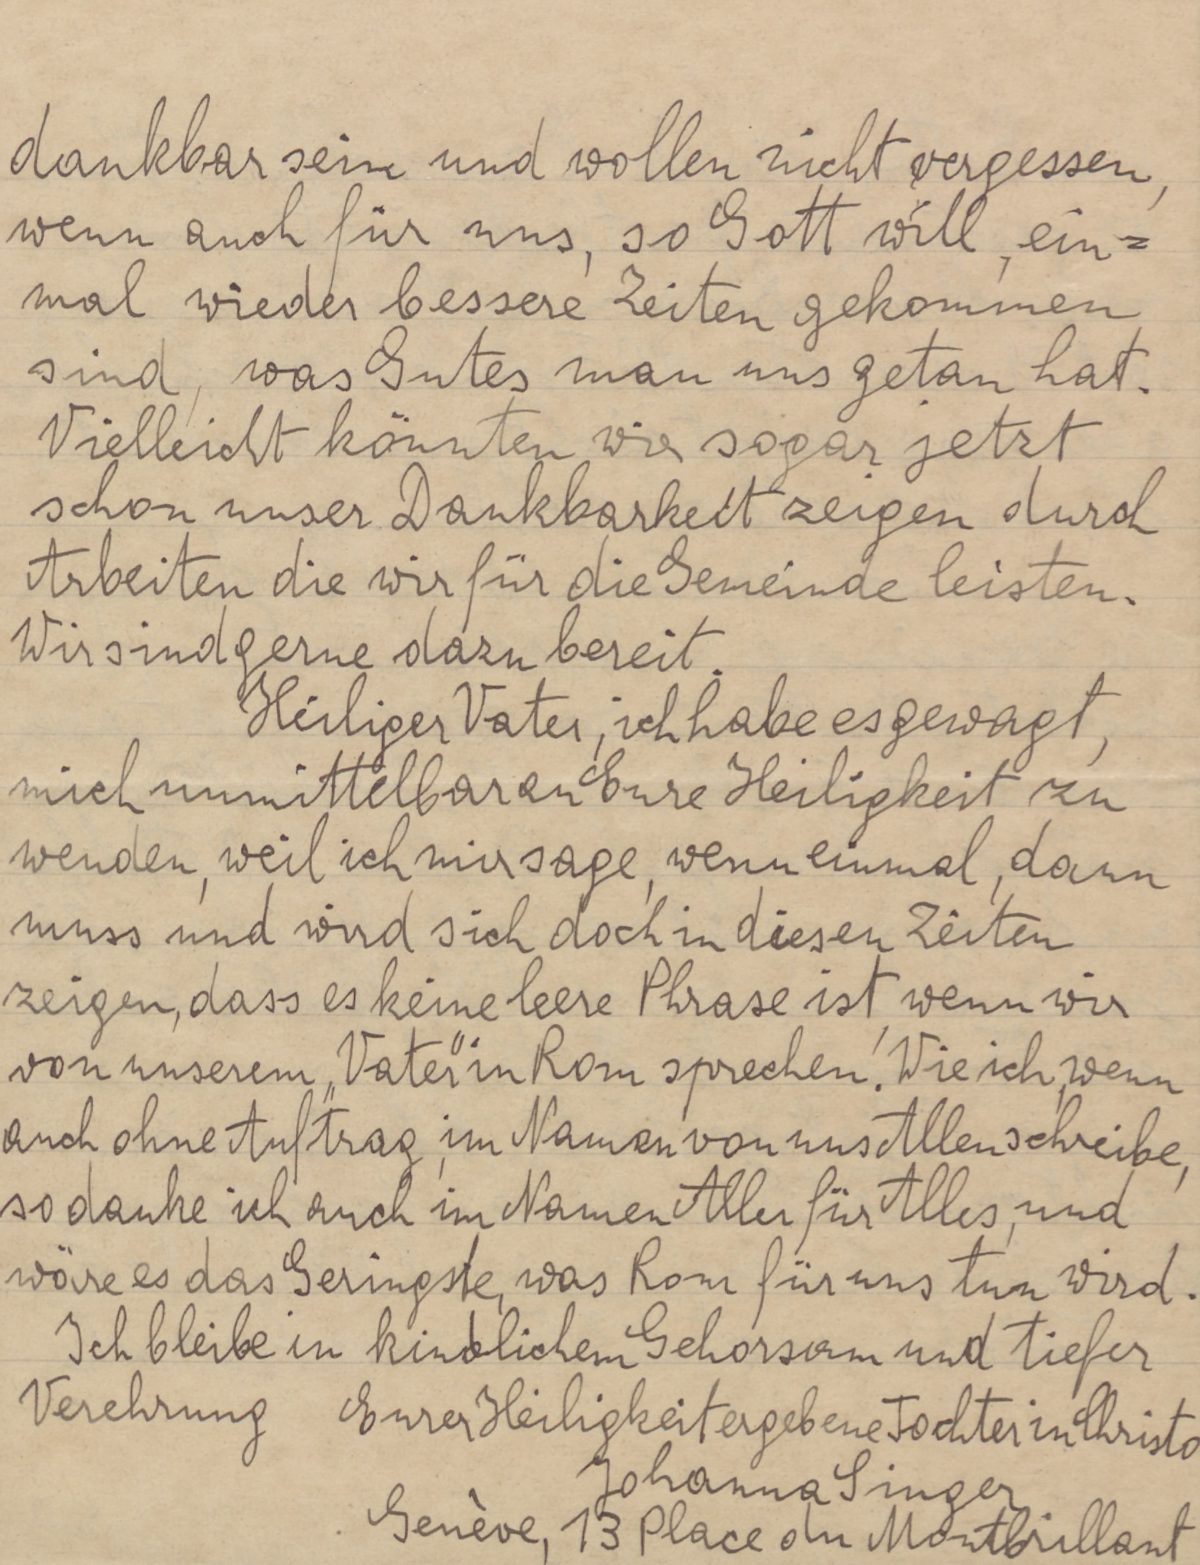 dankbar sein und wollen nicht vergessen,
wenn auch für uns, so Gott will, ein=
mal wieder bessere Zeiten gekommen
sind, was Gutes man uns getan hat.
Vielleicht könnten wir sogar jetzt
schon unser Dankbarkeit zeigen durch
Arbeiten die wir für die Gemeinde leisten.
Wir sind gerne dazu bereit.
Heiliger Vater, ich habe es gewagt,
mich unmittelbar an Eure Heiligkeit zu
wenden, weil ich mir sage, wenn einmal, dann
muss und wird sich doch in diesen Zeiten
zeigen, dass es keine leere Phrase ist, wenn wir
von unserem „Vater" in Rom sprechen! Wie ich, wenn
auch ohne Auftrag, im Namen von uns Allen schreibe,
so danke ich auch im Namen Aller für Alles, und
wäre es das Geringste, was Rom für uns tun wird.
Ich bleibe in kindlichem Gehorsam und tiefer
Verehrung Eurer Heiligkeit ergebene Tochter in Christo
Johanna Singer
Genève, 13 Place du Montbrillant